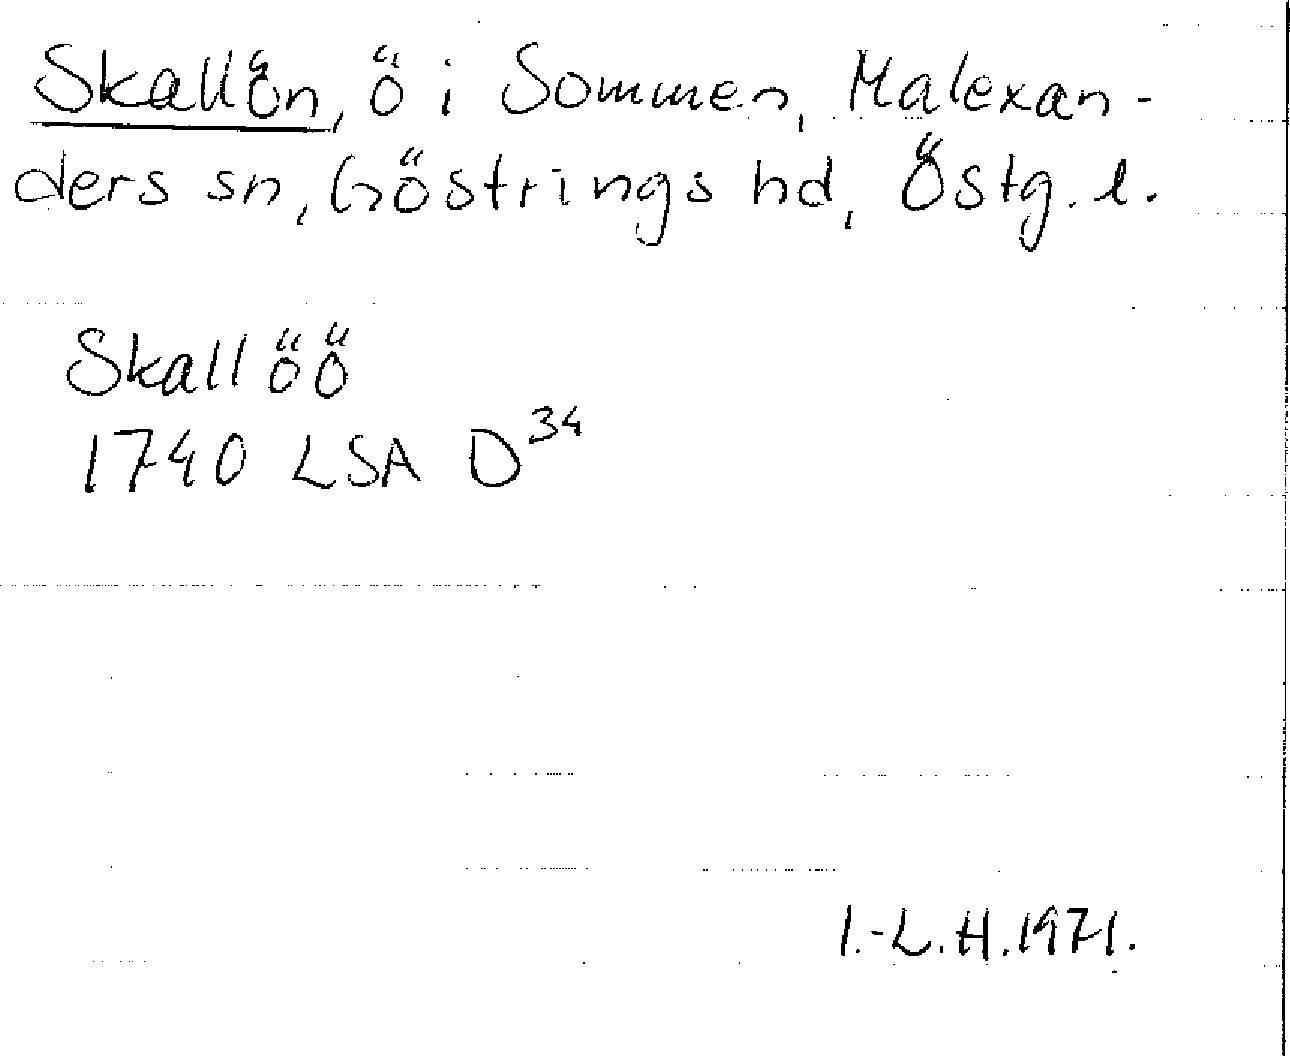 Skallön, ö i Sommen, Malexan-
ders sn, Göstrings hd, Östg. l.
Skallöö
1740 LSA D³⁴
I.-L.H.1971.